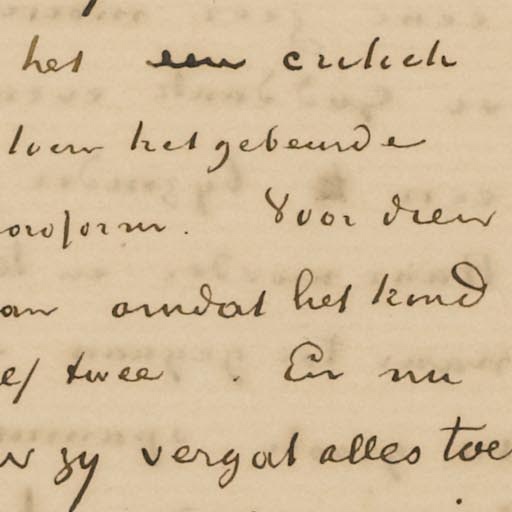 het een critiek
toen het gebeurde
oroform. Voor dien
an omdat het kind
ef twee. En nu
zy vergat alles toe